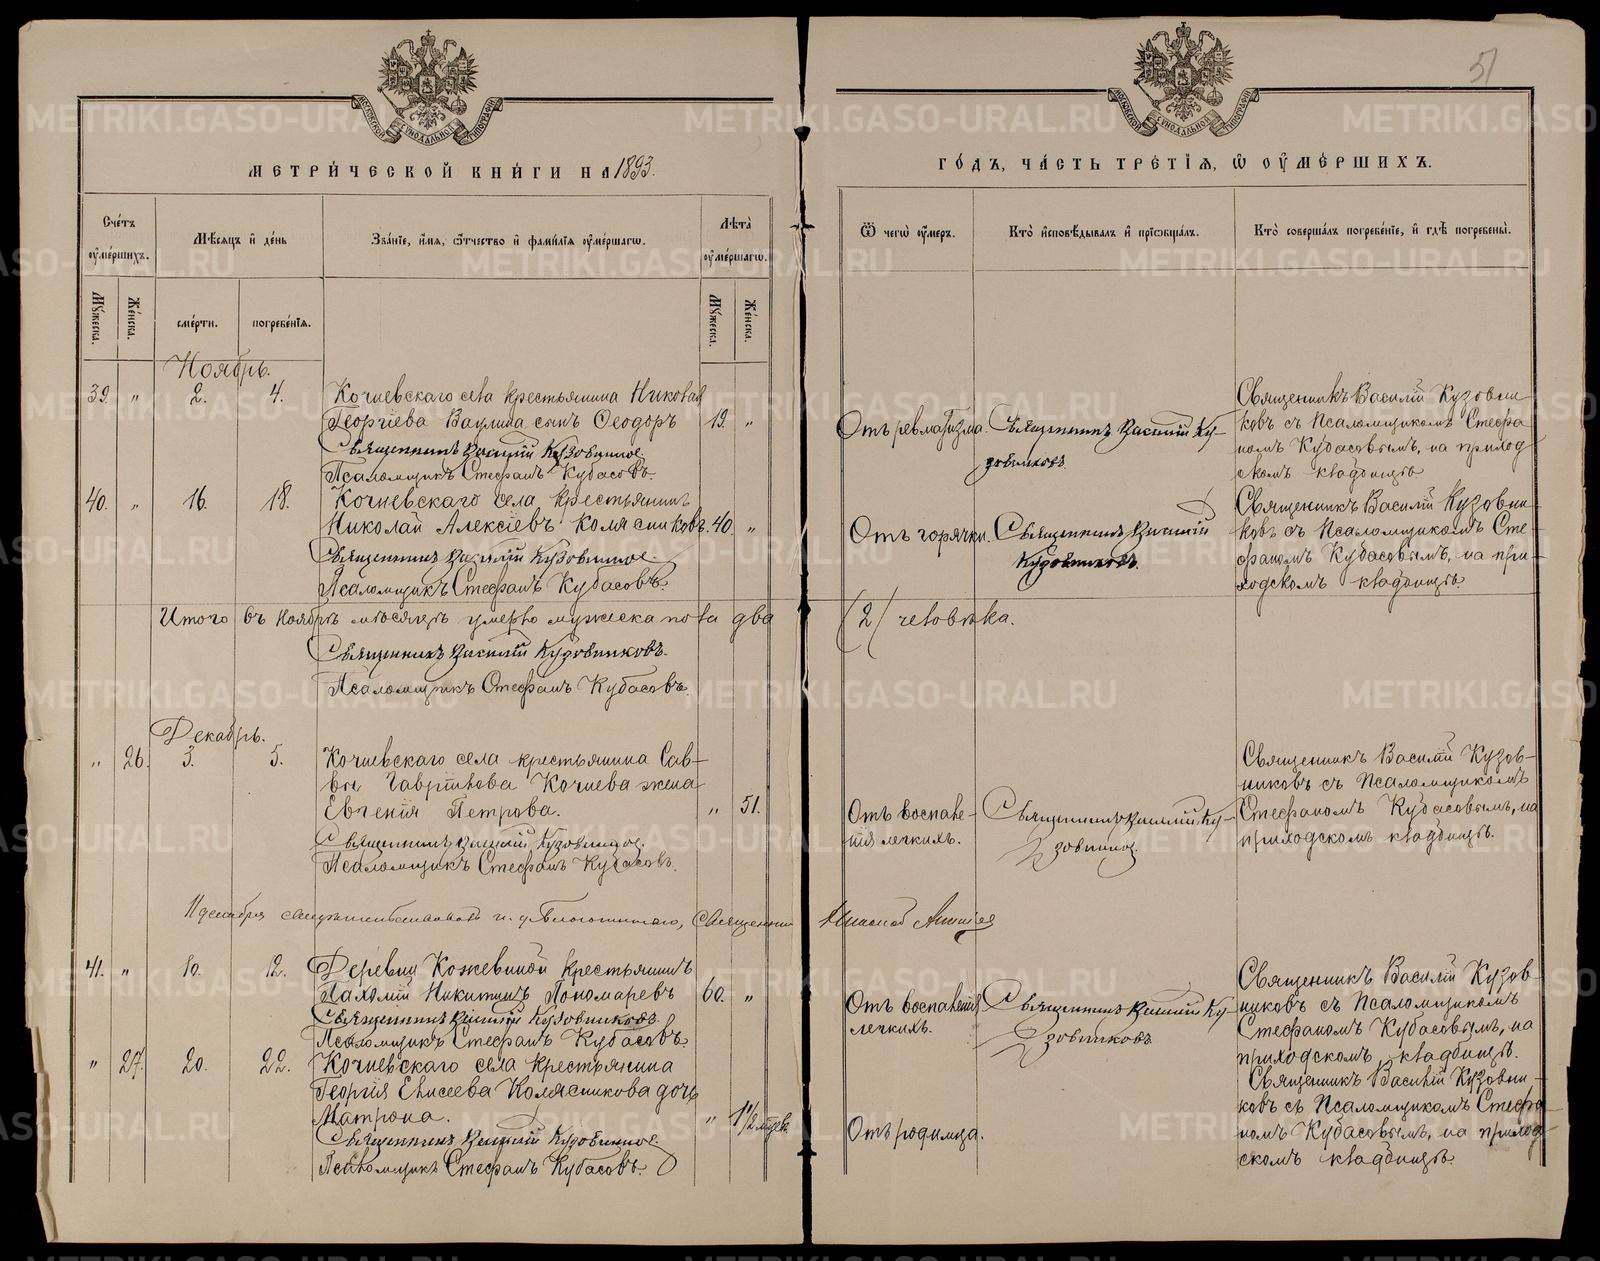 51
МЕТРИ́ЧЕСКОЙ КНИ́ГИ НА 1893.
ГО́ДЪ, ЧА́СТЬ ТРЕ́ТІЯ, Ѡ ОУМЕ́РШИХЪ.
Сче́тъ оуме́ршихъ.
Мѣ́сяцъ и де́нь
Зва́нїе, и́мя, ѻ́тчество и фами́лїя оуме́ршагѡ.
Лѣ́та оуме́ршагѡ.
Ѿ чегѡ̀ оу́меръ.
Кто̀ исповѣ́дывалъ и прїѡбща́лъ.
Кто̀ соверша́лъ погребе́нїе, и гдѣ̀ погребены̀.
Мꙋ́жеска.
Же́нска.
сме́рти.
погребе́нїя.
Мꙋ́жеска.
Же́нска.
Ноябрь.
39. " 2. 4.
Кочневскаго села крестьянина Николая
Георгіева Ваулина сынъ Ѳеодоръ 19. "
Священникъ Василій Кузовников
Псаломщикъ Стефанъ Кубасовъ.
Отъ ревматизма.
Священникъ Василій Ку-
зовниковъ.
Священникъ Василій Кузовни
ковъ съ Псаломщикомъ Стефа
номъ Кубасовымъ, на приход
скомъ кладбищѣ.
40. " 16. 18.
Кочневскаго села крестьянинъ
Николай Алексіевъ Колясниковъ. 40. "
Священникъ Василій Кузовников
Псаломщикъ Стефанъ Кубасовъ.
Отъ горячки.
Священникъ Василій
Кузовниковъ.
Священникъ Василій Кузовни
ковъ съ Псаломщикомъ Сте-
фаномъ Кубасовымъ, на при-
ходскомъ кладбищѣ.
Итого въ Ноябрѣ мѣсяцѣ умерло мужеска пола два (2) человѣка.
Священникъ Василій Кузовниковъ.
Псаломщикъ Стефанъ Кубасовъ.
Декабрь.
" 26. 3. 5.
Кочневскаго села крестьянина Сав-
вы Гавріилова Кочнева жена
Евгенія Петрова. " 51.
Священникъ Василій Кузовников
Псаломщикъ Стефанъ Кубасовъ.
Отъ воспале-
нія легкихъ.
Священникъ Василій Ку-
зовников
Священникъ Василій Кузов-
никовъ съ Псаломщикомъ
Стефаномъ Кубасовымъ, на
приходскомъ кладбищѣ.
декабря свидѣтельствовалъ и. д. Благочиннаго, Священник
41. " 10. 12.
Деревни Кожевиной крестьянинъ
Пахомій Никитинъ Пономаревъ 60. "
Священникъ Василій Кузовниковъ
Псаломщикъ Стефанъ Кубасовъ.
Отъ воспаленія
легкихъ.
Священникъ Василій Ку-
зовниковъ
Священникъ Василій Кузов-
никовъ съ Псаломщикомъ
Стефаномъ Кубасовымъ, на
приходскомъ кладбищѣ.
" 27. 20. 22.
Кочневскаго села крестьянина
Георгія Елисеева Колясникова дочь
Матрона. " 1 1/2 мѣс.
Священникъ Василій Кузовников
Псаломщикъ Стефанъ Кубасовъ.
Отъ родимца.
Священникъ Василій Кузовни-
ковъ съ Псаломщикомъ Стефа
номъ Кубасовымъ, на приход-
скомъ кладбищѣ.
METRIKI.GASO-URAL.RU